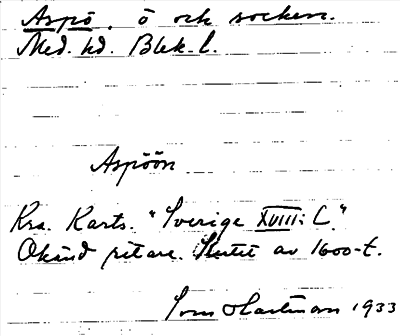 Aspö, ö och socken.
Med. hd. Blek. l.
Aspöön
Kra. Karts. "Sverige XVIII: C."
Okänd ritare. Slutet av 1600-t.
1933